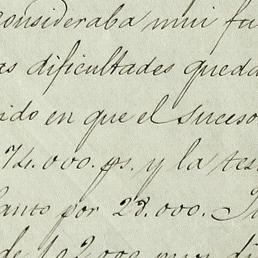 consideraba mui fa
as dificultades queda
ido en que el suceso
74.000. ps. y la tes
anto por 28.000. 
de 102.000 muy di